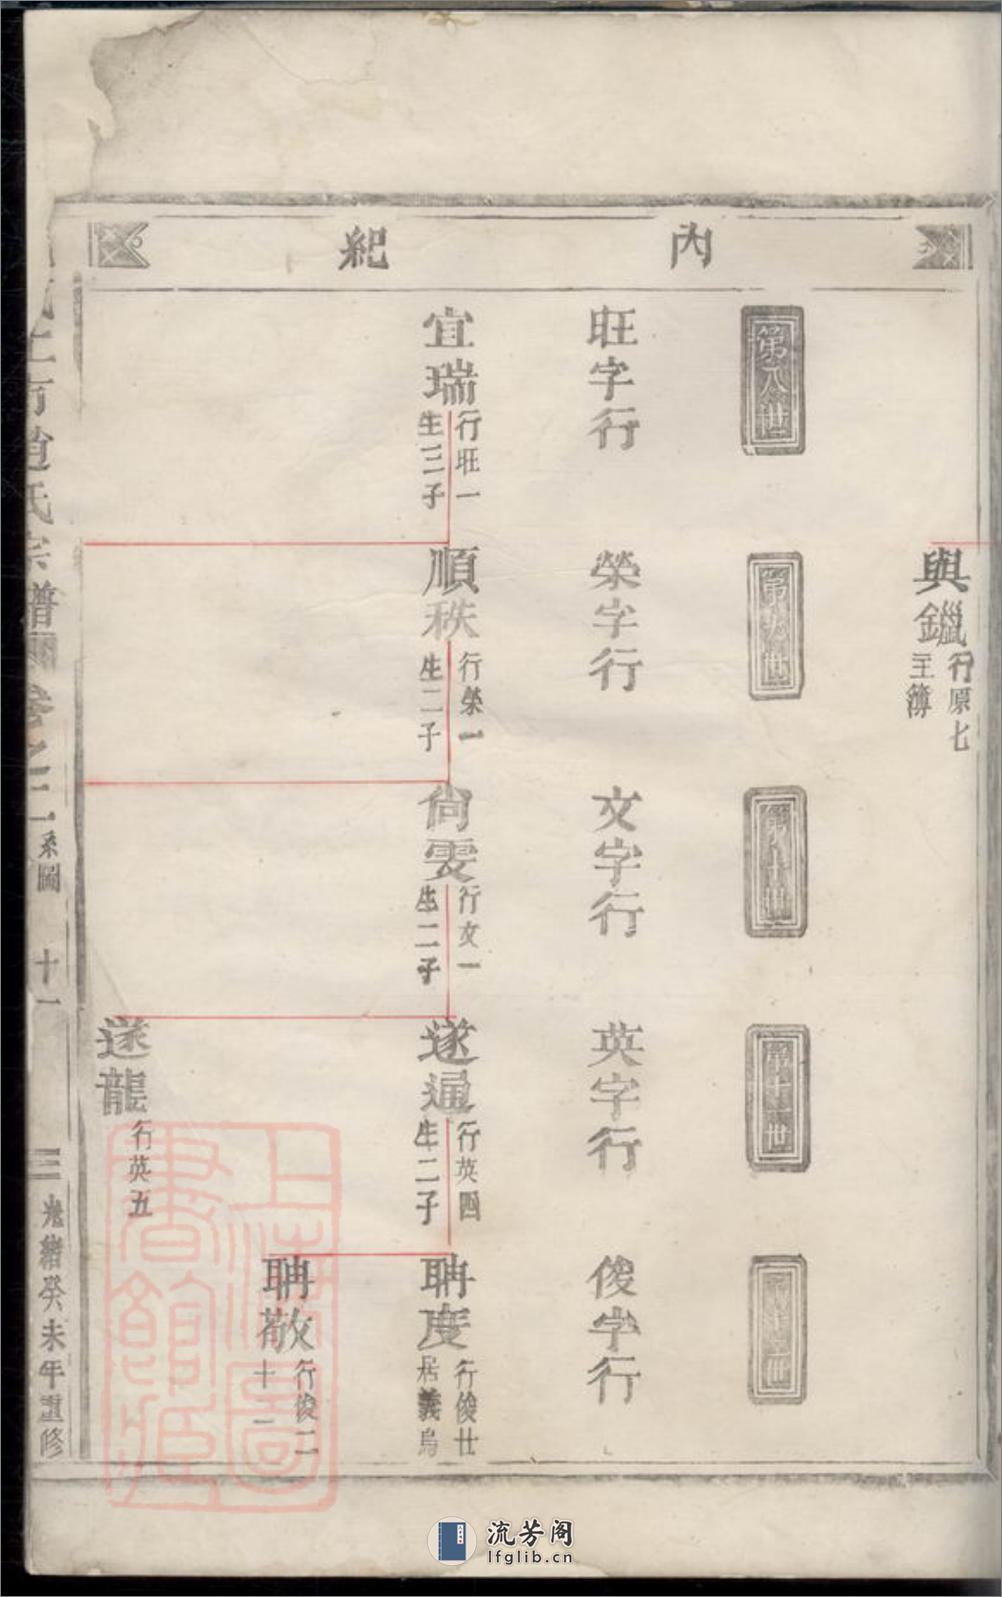 內紀
與鑞
行原七
主簿
第八世
第九世
第十世
第十一世
旺字行
榮字行
文字行
英字行
俊字行
宜瑞
行旺一
生三子
順秩
行榮一
生二子
尙雯
行文一
生二子
遂通
行英四
生二子
聃度
行俊廿
居義烏
聃敬
行俊二
十二
遂龍
行英五
趙氏宗譜
卷之二
系圖
十一
三
光緖癸未年重修
上海圖書館藏
流芳阁
lfglib.cn